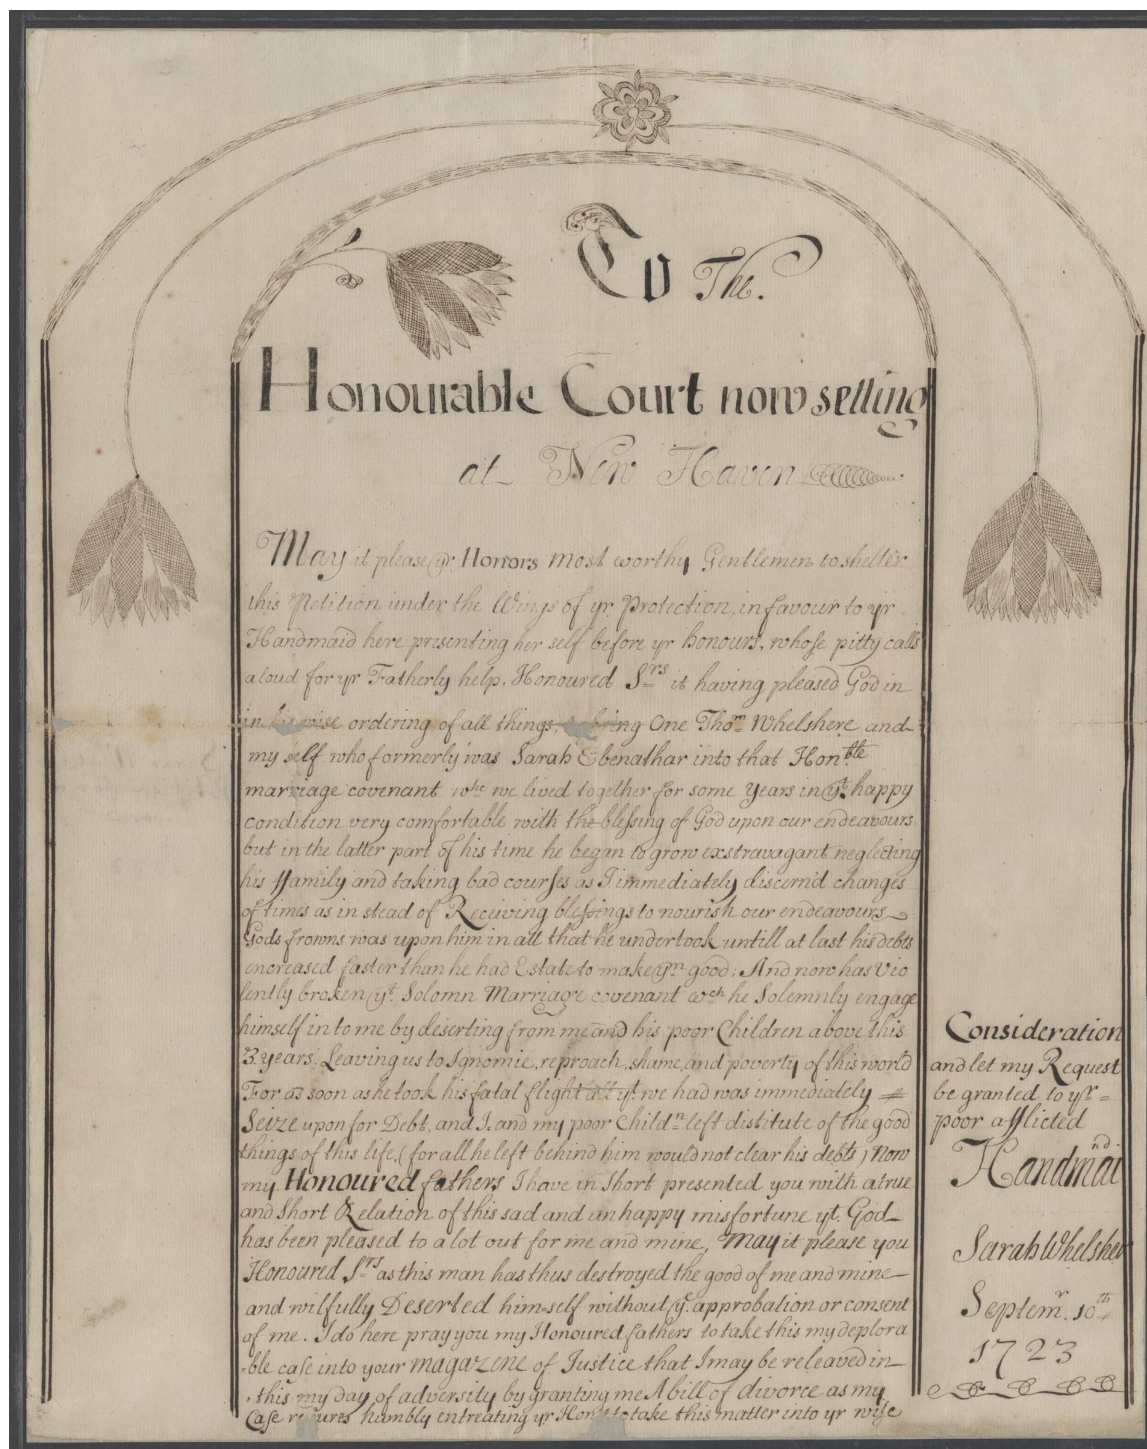 To The.
Honourable Court now setting
at New Haven
May it please yr Honors most worthy Gentlemen to shelter
this Petition under the Wings of yr Protection, in favour to yr
Handmaid here presenting her self before yr honours, whose pitty calls
aloud for yr Fatherly help, Honoured Srs it having pleased God in
in ordering of all things, One Thom Whelshere and
my self who formerly was Sarah Ebenathar into that Honble
marriage covenant whc we lived together for some years in yt happy
condition very comfortable with the blessing of God upon our endeavours
but in the latter part of his time he began to grow exstravagant neglecting
his ffamily and taking bad courses as I immediately discernd changes
of times as in stead of Receiving blessings to nourish our endeavours
Gods frowns was upon him in all that he undertook untill at last his debts
encreased faster than he had Estate to make ym good; And now has vio
lently broken yt Solomn Marriage covenant wch he Solemnly engage
himself in to me by deserting from me and his poor Children above this
3 years. Leaving us to Ignomie, reproach, shame, and poverty of this world
For as soon as he took his fatal flight all yt we had was immediately
Seize upon for Debt, and I, and my poor Childn left distitute of the good
things of this life, (for all he left behind him would not clear his debts) Now
my Honoured fathers I have in short presented you with a true
and short Relation of this sad and unhappy misfortune yt. God
has been pleased to a lot out for me and mine, May it please you
Honoured Srs as this man has thus destroyed the good of me and mine
and wilfully Deserted him=self without ye approbation or consent
of me. I do here pray you my Honoured fathers to take this my deplora
=ble case into your magazene of Justice that I may be releaved in
this my day of adversity by granting me A bill of divorce as my
Case requres humbly entreating yr Honrs to take this matter into yr wise
Consideration
and let my Request
be granted to yr =
poor afflicted
Handmaid
Sarah Whelsher
Septemr. 10th
1723